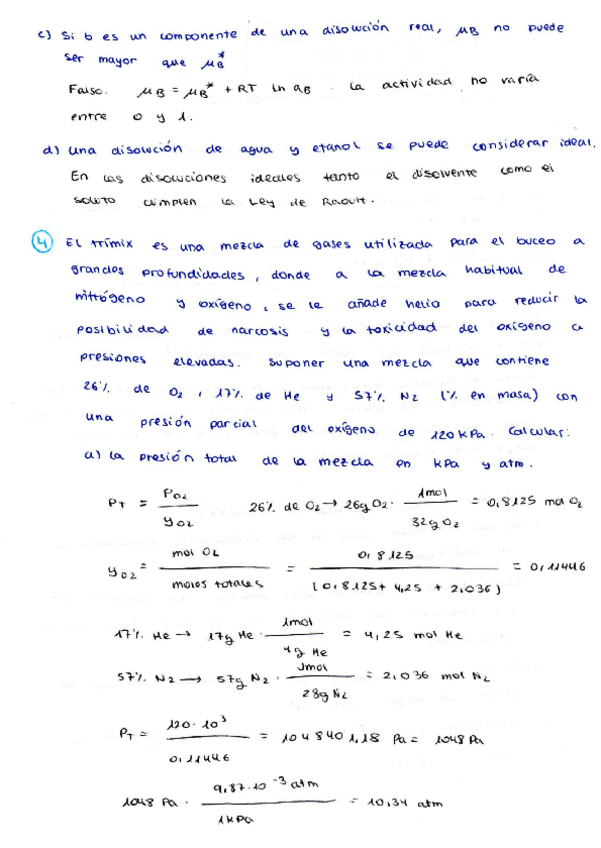 c) Si b es un componente de una disolución real, μB no puede
ser mayor que μB*
Falso. μB = μB* + RT ln aB. La actividad no varía
entre 0 y 1.
d) Una disolución de agua y etanol se puede considerar ideal.
En las disoluciones ideales tanto el disolvente como el
soluto cumplen la Ley de Raoult.
4 El trímix es una mezcla de gases utilizada para el buceo a
grandes profundidades, donde a la mezcla habitual de
nitrógeno y oxígeno, se le añade helio para reducir la
posibilidad de narcosis y la toxicidad del oxígeno a
presiones elevadas. Suponer una mezcla que contiene
26% de O2, 17% de He y 57% N2 (% en masa) con
una presión parcial del oxígeno de 120 kPa. Calcular:
a) la presión total de la mezcla en kPa y atm.
PT = PO2 / yO2 26% de O2 → 26g O2 · 1mol / 32g O2 = 0,8125 mol O2
yO2 = mol O2 / moles totales = 0,8125 / (0,8125 + 4,25 + 2,036) = 0,11446
17% He → 17g He · 1mol / 4g He = 4,25 mol He
57% N2 → 57g N2 · 1mol / 28g N2 = 2,036 mol N2
PT = 120·10³ / 0,11446 = 1048401,18 Pa = 1048 Pa
1048 Pa · 9,87·10⁻³ atm / 1kPa = 10,34 atm